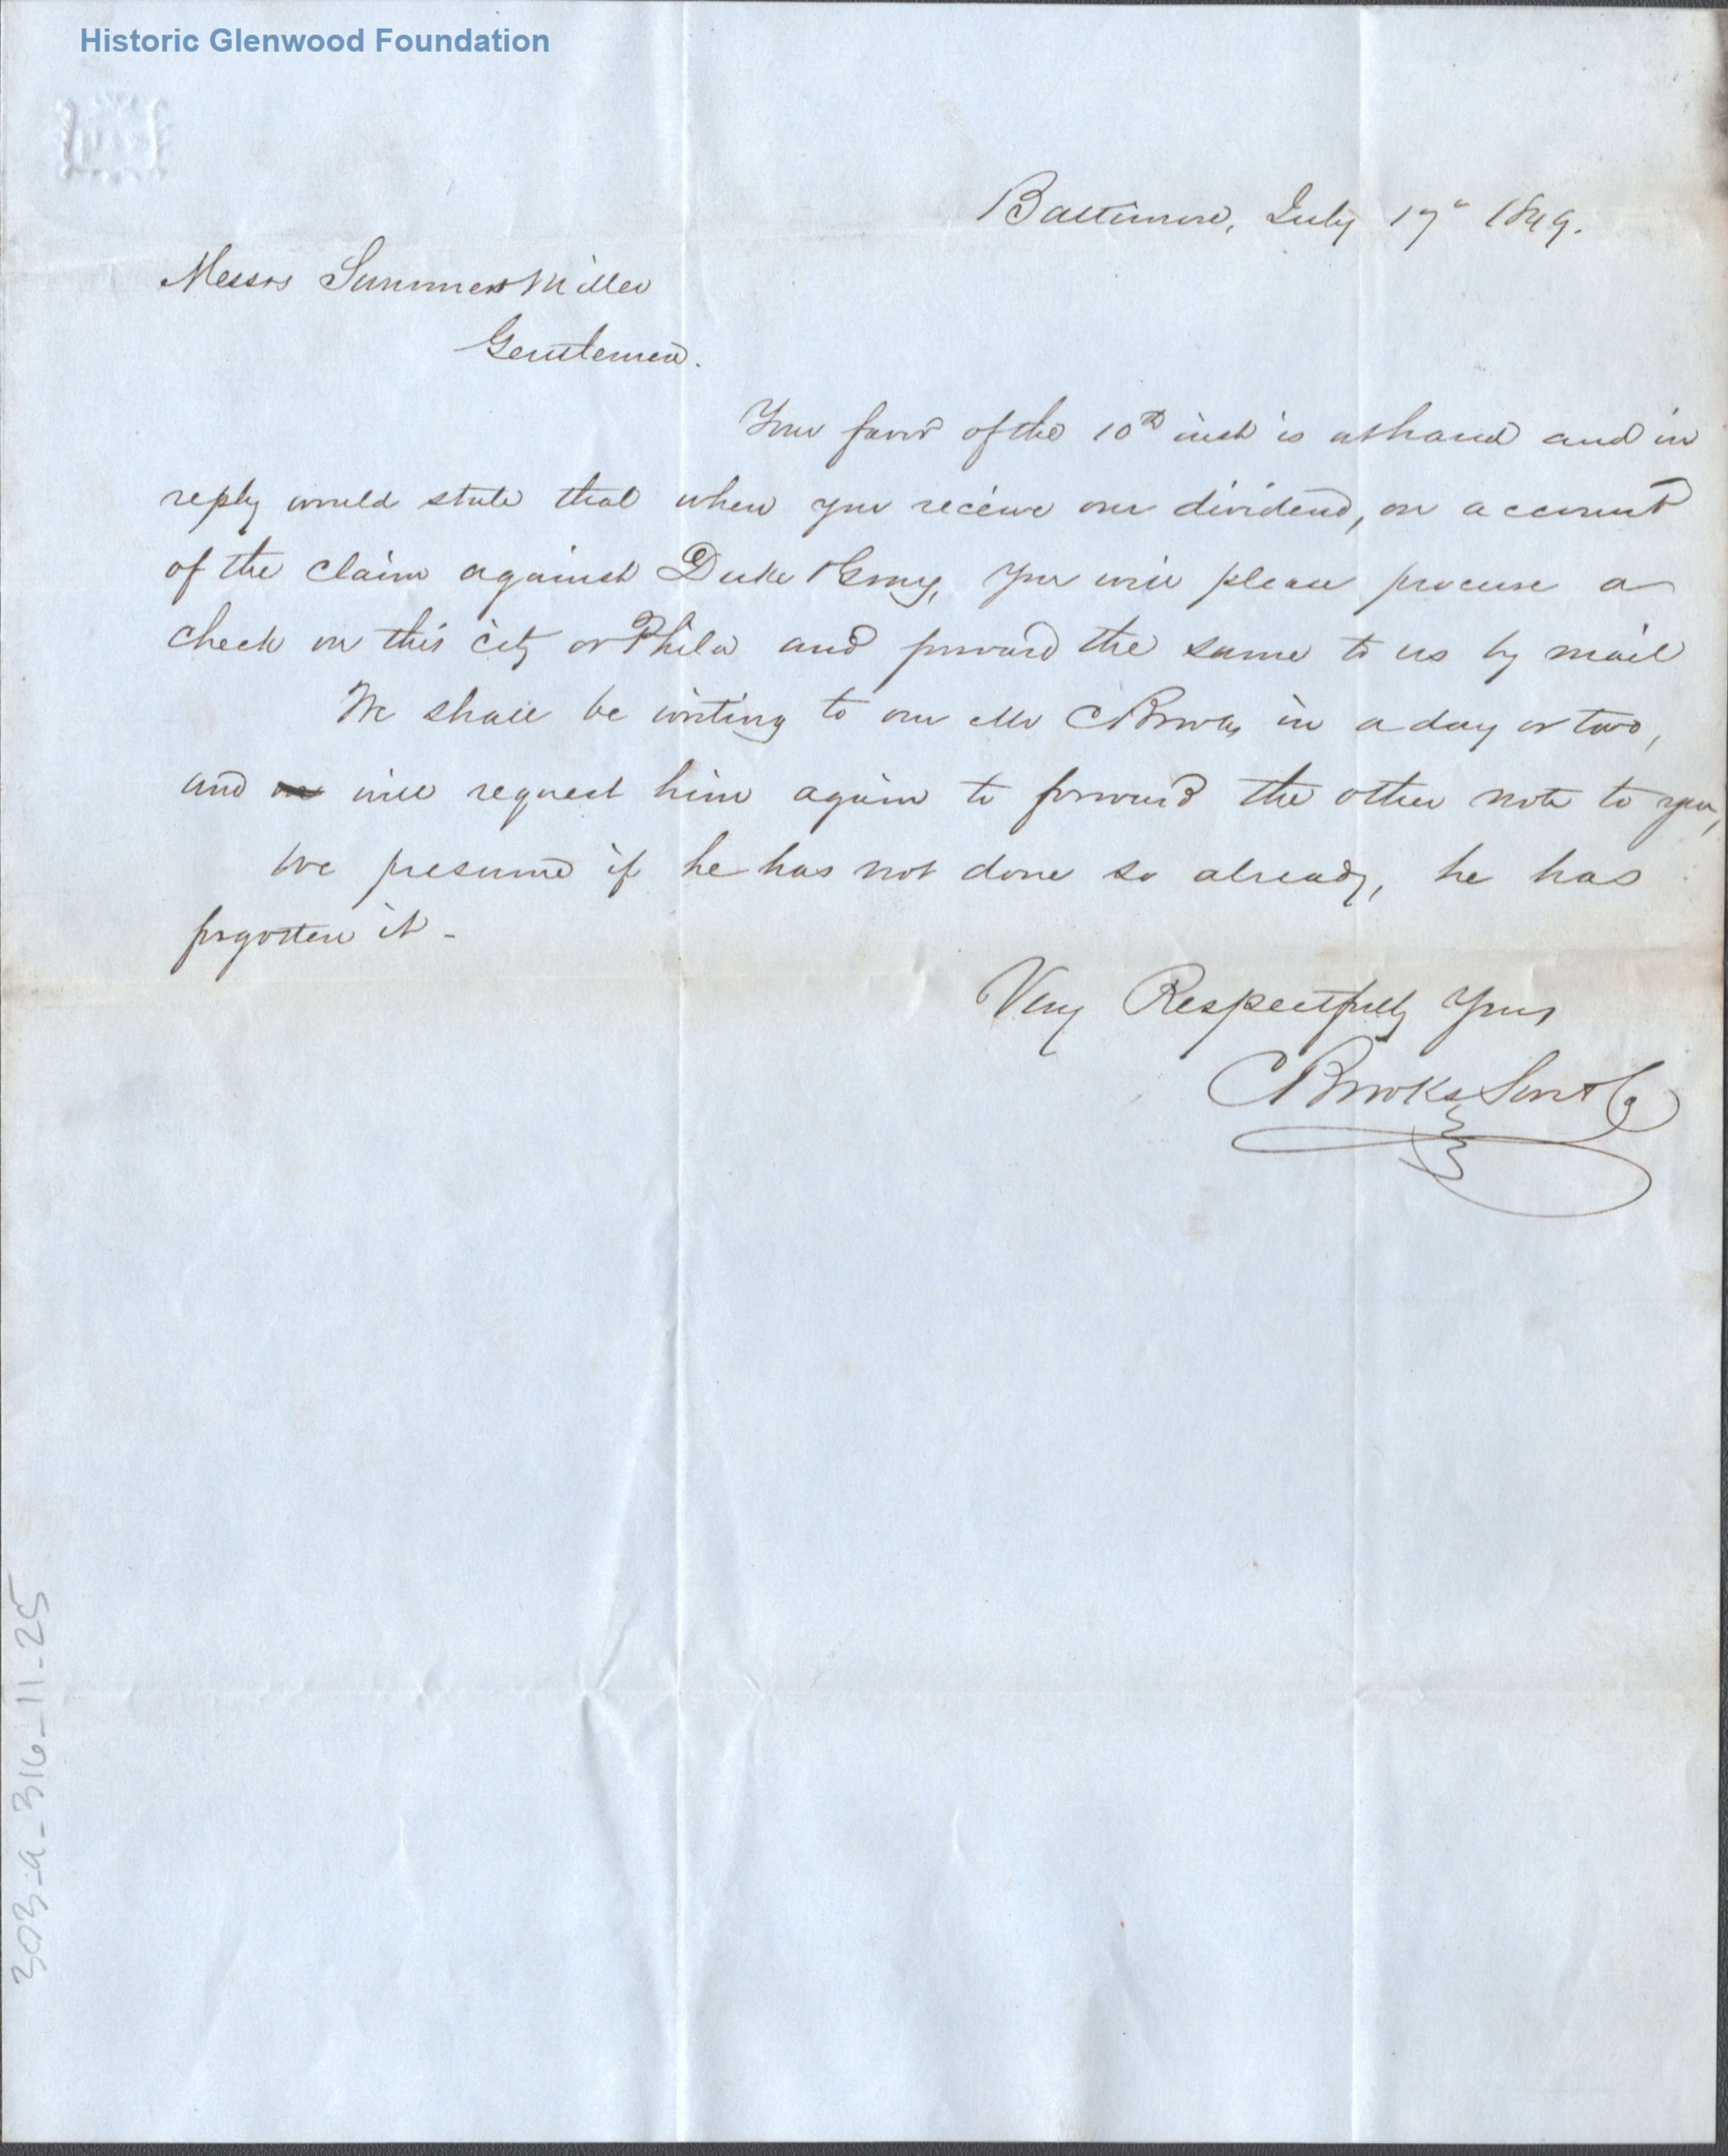 Historic Glenwood Foundation
Baltimore, July 17" 1849.
Messrs Summers & Miller
Gentlemen.
Your favor of the 10th inst is at hand and in
reply would state that when you receive our dividend, on account
of the claim against Duke & Gray, you will please procure a
check on this city or Phila and forward the same to us by mail
We shall be writing to our Mr C Brooks in a day or two,
and will request him again to forward the other note to you,
We presume if he has not done so already, he has
forgotten it -
Very Respectfully Yours
C Brooks Son & Co
303-a-316-11-25